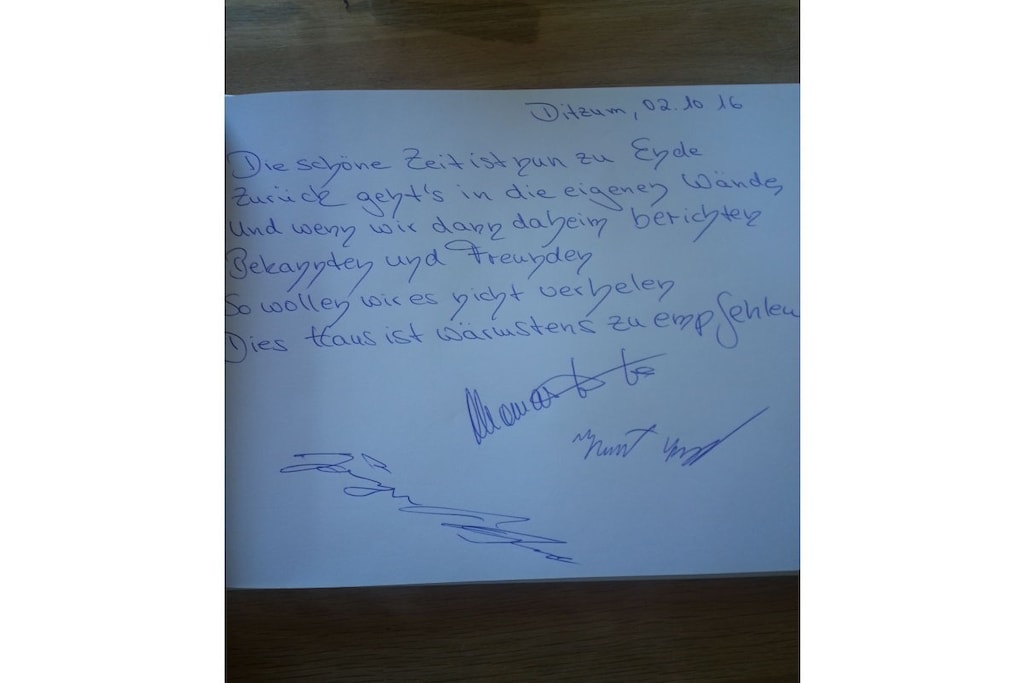 Ditzum, 02.10.16
Die schöne Zeit ist nun zu Ende
Zurück geht's in die eigenen Wände,
Und wenn wir dann daheim berichten
Bekannten und Freunden
So wollen wir es nicht verhelen
Dies Haus ist wärmstens zu empfehlen